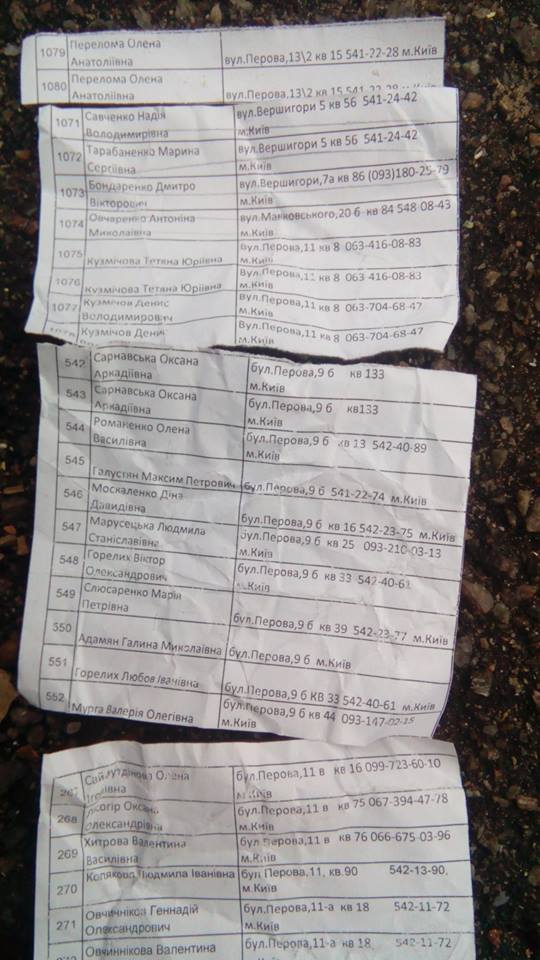 1079 Перелома Олена
Анатоліївна вул.Перова,13\2 кв 15 541-22-28 м.Київ
1080 Перелома Олена
Анатоліївна
1071 Савченко Надія вул.Вершигори 5 кв 56 541-24-42
Володимирівна м.Київ
1072 Тарабаненко Марина вул.Вершигори 5 кв 56 541-24-42
Сергіївна м.Київ
1073 Бондаренко Дмитро вул.Вершигори,7а кв 86 (093)180-25-79
Вікторович м.Київ
1074 Овчаренко Антоніна вул.Маяковського,20 б кв 84 548-08-43
Миколаївна м.Київ
1075 вул.Перова,11 кв 8 063-416-08-83
Кузмічова Тетяна Юріївна м.Київ
1076 вул.Перова,11 кв 8 063-416-08-83
Кузмічова Тетяна Юріївна м.Київ
1077 Кузмічов Денис вул.Перова,11 кв 8 063-704-68-47
Володимирович м.Київ
Кузмічов Денис вул.Перова,11 кв 8 063-704-68-47
542 Сарнавська Оксана бул.Перова,9 б кв 133
Аркадіївна м.Київ
543 Сарнавська Оксана бул.Перова,9 б кв133
Аркадіївна м.Київ
544 Романенко Олена бул.Перова,9 б кв 13 542-40-89
Василівна м.Київ
545
Галустян Максим Петрович бул.Перова,9 б 541-22-74 м.Київ
546 Москаленко Діна
Давидівна бул.Перова,9 б кв 16 542-23-75 м.Київ
547 Марусецька Людмила бул.Перова,9 б кв 25 093-210-03-13
Станіславівна м.Київ
548 Горелих Віктор бул.Перова,9 б кв 33 542-40-61
Олександрович м.Київ
549 Слюсаренко Марія
Петрівна бул.Перова,9 б кв 39 542-23-77 м.Київ
550
Адамян Галина Миколаївна бул.Перова,9 б м.Київ
551
Горелих Любов Іванівна бул.Перова,9 б КВ 33 542-40-61 м.Київ
552 бул.Перова,9 б кв 44 093-147-02-15
Мурга Валерія Олегівна м.Київ
267 Олена бул.Перова,11 в кв 16 099-723-60-10
м.Київ
268 Оксана бул.Перова,11 в кв 75 067-394-47-78
Олександрівна м.Київ
269 Хитрова Валентина бул.Перова,11 в кв 76 066-675-03-96
Василівна м.Київ
270 Колякова Людмила Іванівна бул.Перова,11, кв.90 542-13-90,
м.Київ
271 Овчиннікова Геннадій бул.Перова,11-а кв 18 542-11-72
Олександрович м.Київ
Овчиннікова Валентина бул.Перова,11-а кв 18 542-11-72